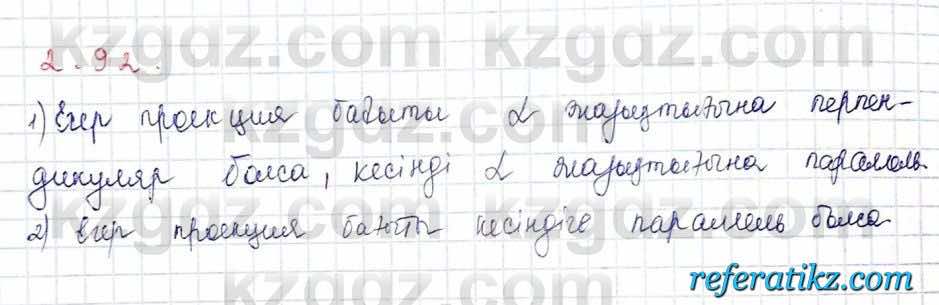 kzgdz.com kzgdz.com
2.92.
1) Егер проекция бағыты α жазықтығына перпен-
дикуляр болса, кесінді α жазықтығына параллель
2) егер проекция бағыты кесіндіге параллель болса
referatikz.com